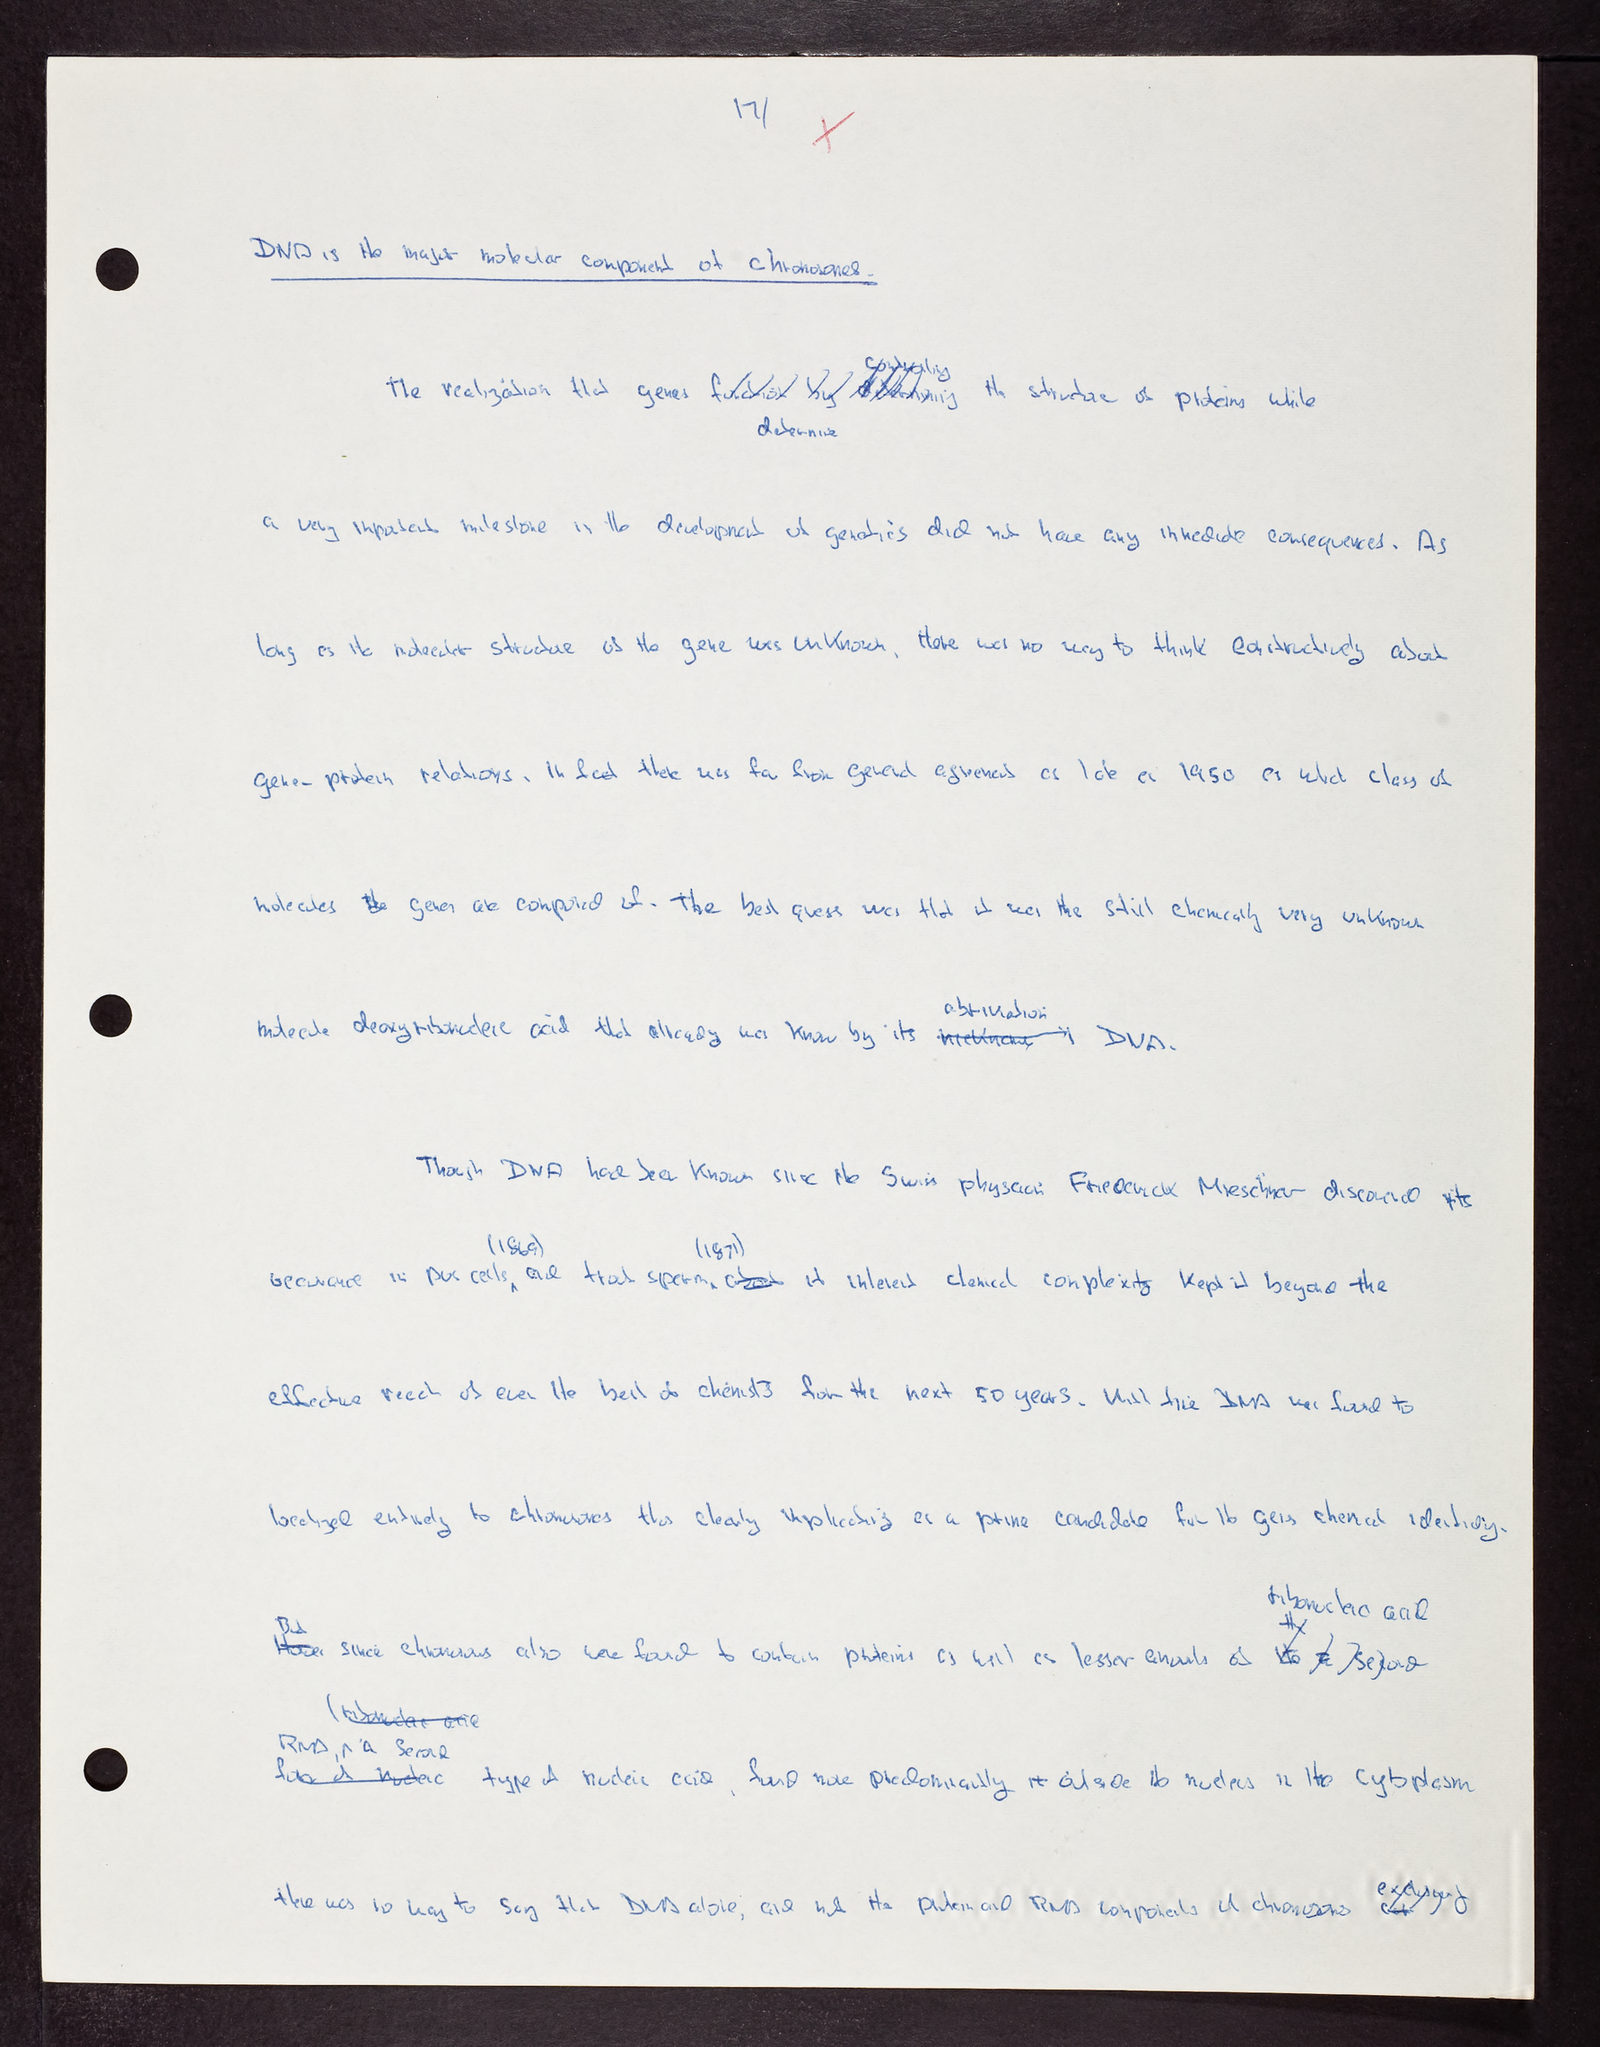 17/ X
DNA is the major molecular component of chromosomes.
controlling
The realization that genes function by determining the structure of proteins while
determine
a very important milestone in the development of genetics did not have any immediate consequences. As
long as the molecular structure of the gene was unknown, there was no way to think constructively about
gene-protein relations. In fact there was far from general agreement as late as 1950 as what class of
molecules the genes are composed of. The best guess was that it was the still chemically very unknown
abbriviation
molecule deoxyribonucleic acid that already was know by its nickname DNA.
Though DNA had been known since the Swiss physician Friederick Mieschner discovered its
(1869) (1871)
occurance in pus cells, and trout sperm, it inherent chemical complexity kept it beyond the
effective reach of even the best of chemists for the next 50 years. Until time DNA was found to
localized entirely to chromosomes thus clearly implicating as a prime candidate for the genes chemical identity.
ribonucleic acid
But the
since chromosomes also were found to contain proteins as well as lesser amounts of the a second
(ribonucleic acid
RNA, a second
form of nucleic type of nucleic acid, found more predominantly outside the nucleus in the cytoplasm
exclusively
there was no way to say that DNA alone, and not the protein and RNA components of chromosomes